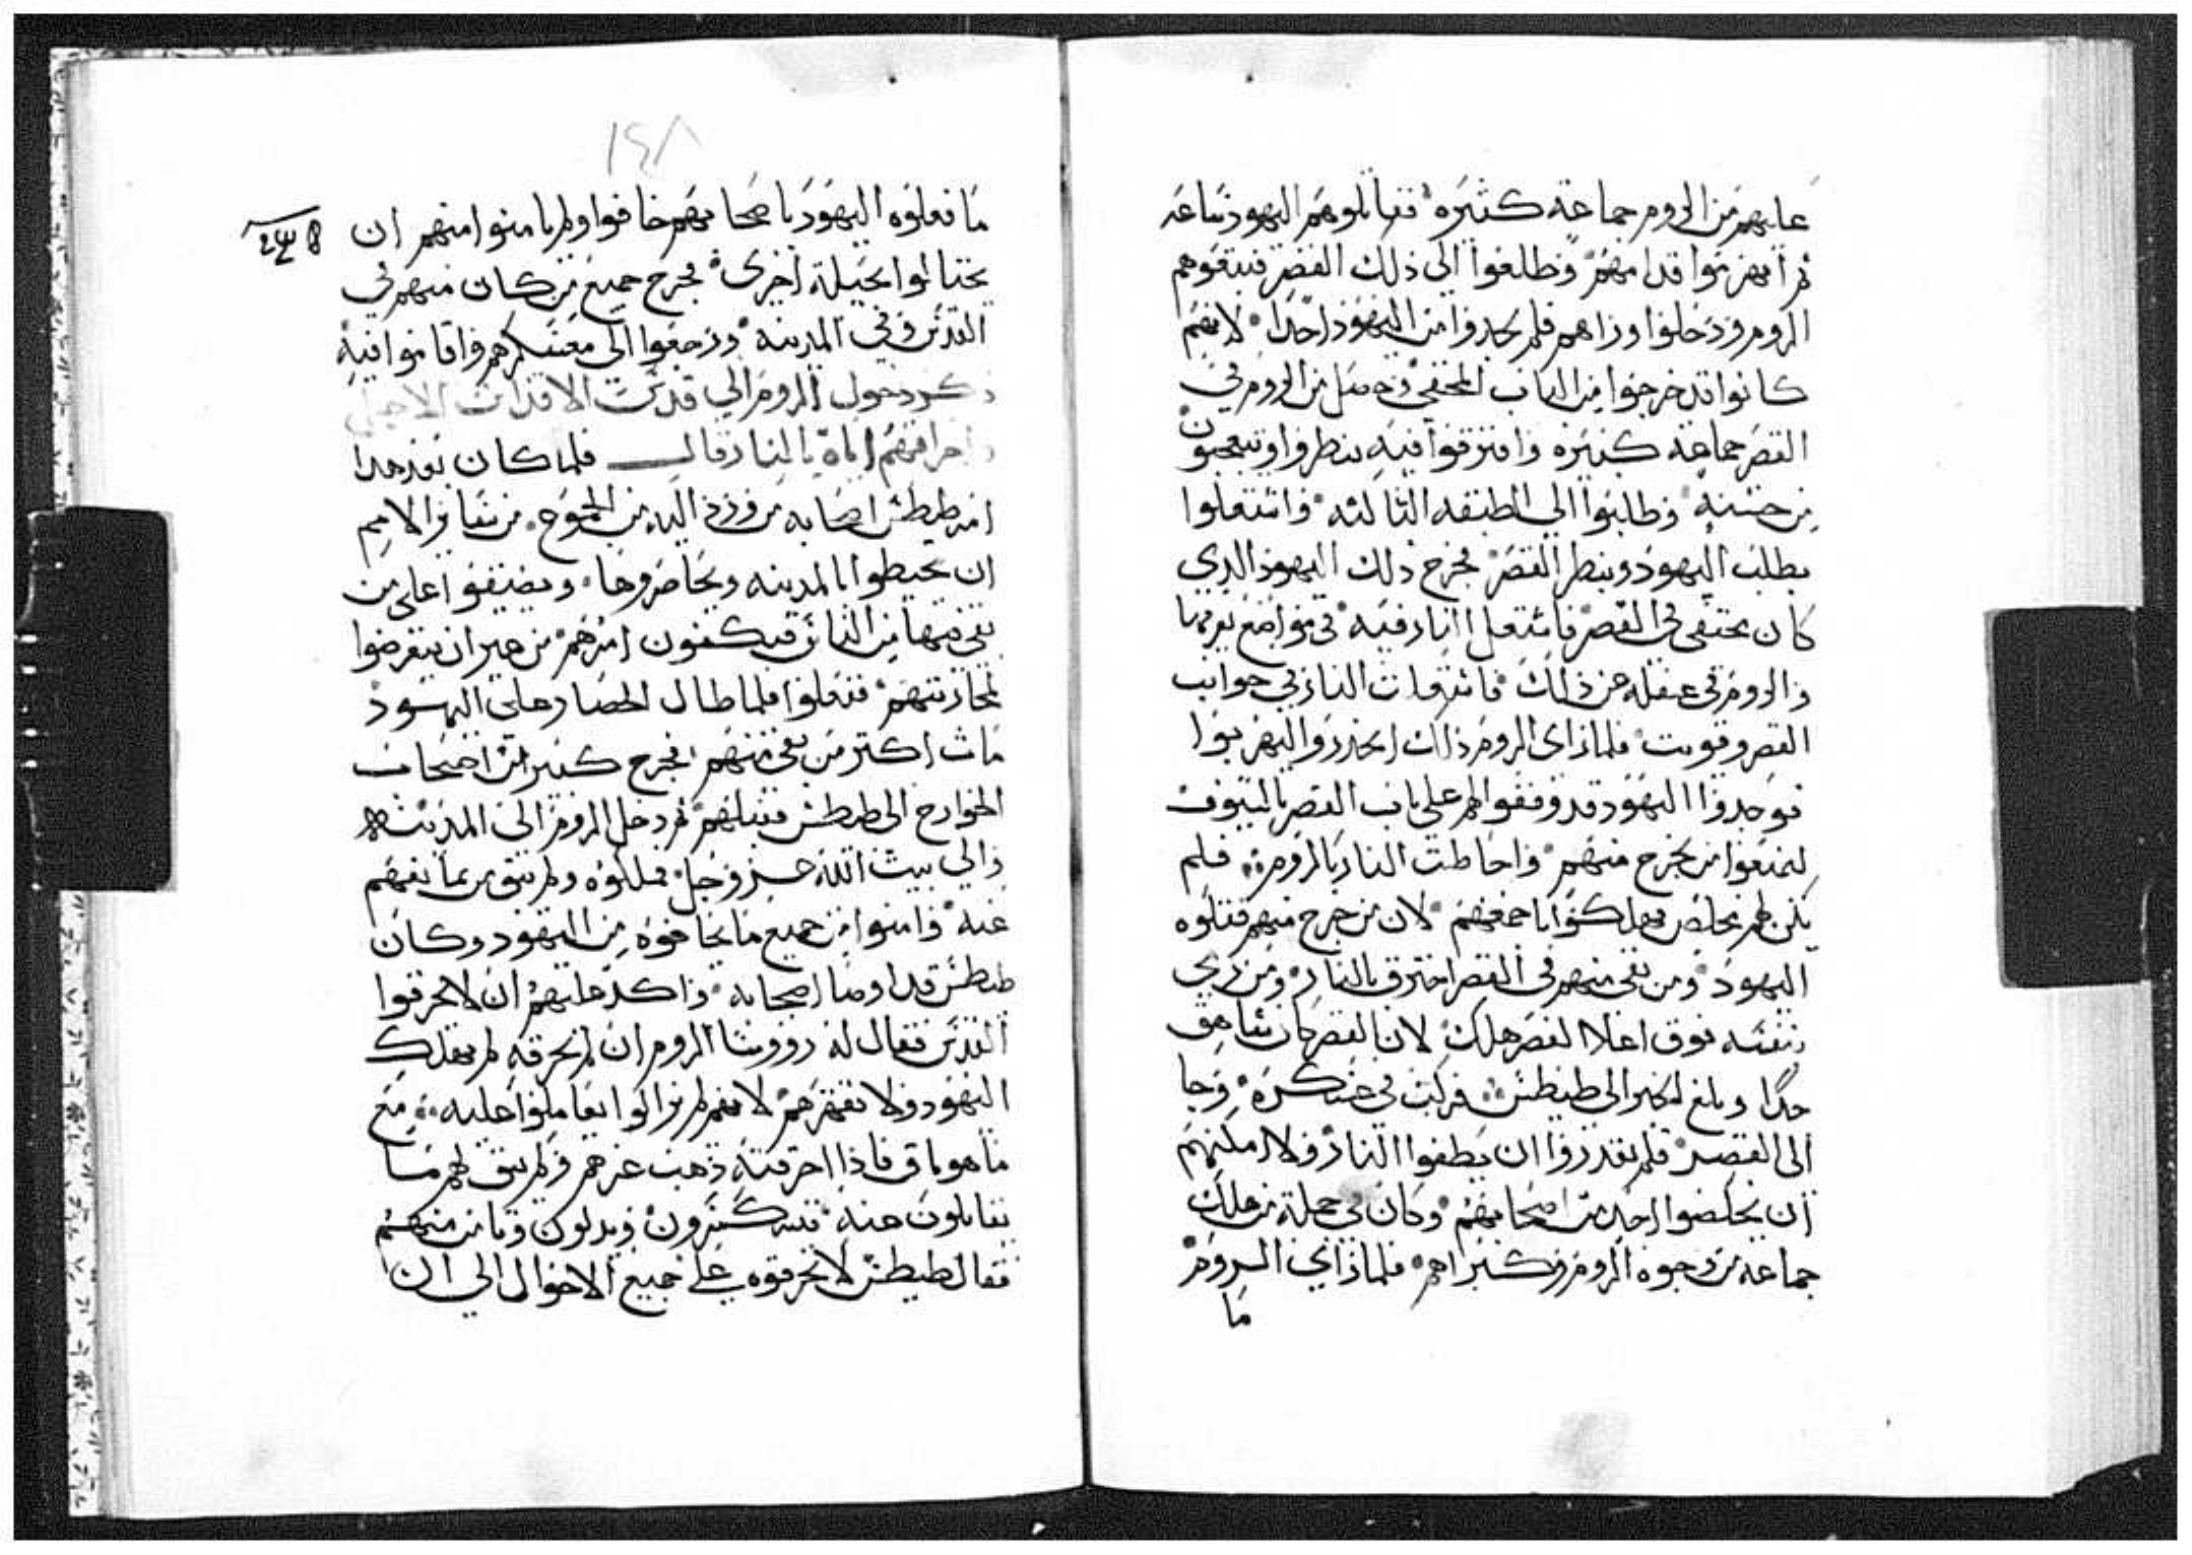 عليهم من الروم جماعة كثيره فقاتلوهم اليهود ساعه
ثم انهزموا قدامهم وطلعوا الى ذلك القصر فتبعوهم
الروم ودخلوا وراهم فلم يجدوا من اليهود احدا لانهم
كانوا قد خرجوا من الباب المخفي وحصل من الروم في
القصر جماعة كثيره وافترقوا فيه ينظروا ويتعجبون
من حسنه وطلبوا الى الطبقه الثالثه واشتغلوا
بطلب اليهود وينظر القصر فخرج ذلك اليهود الدي
كان مختفي في القصر فاشعل النار فيه في مواضع يعرفها
والروم في غفله عن ذلك فاشتعلت النار في جوانب
القصر وقويت فلما راى الروم ذلك انحدروا ليهربوا
فوجدوا اليهود قد وقفوا لهم على باب القصر بالسيوف
ليمنعوا من يخرج منهم واحاطت النار بالروم فلم
يكن لهم مخلص فهلكوا باجمعهم لان من خرج منهم قتلوه
اليهود ومن بقى منهم في القصر احترق بالنار ومن رمى
بنفسه فوق اعلا القصر هلك لان القصر كان شاهق
جدا وبلغ الخبر الى طيطس فركب في عسكره وجا
الى القصر فلم يقدروا ان يطفوا النار ولا امكنهم
ان يخلصوا احد من اصحابهم وكان في جملة من هلك
جماعه من وجوه الروم وكبراهم فلما راى الروم
ما
١٤٨
ما فعلوه اليهود باصحابهم خافوا ولم يامنوا منهم ان
يحتالوا بحيلة اخرى فخرج جميع من كان منهم في
القدس وفي المدينه ورجعوا الى معسكرهم واقاموا فيه
ذكر دخول الروم الي قدس الاقداس الاجل
واحراقهم اياه بالنار قال فلما كان بعد هدا
امر طيطس اصحابه من ورد اليه من الجموع من ساير الامم
ان يحيطوا بالمدينه ويحاصروها ويضيقوا على من
بقى فيها من الناس فيكفون امرهم من غير ان يتعرضوا
لمحاربتهم ففعلوا فلما طال الحصار على اليهود
مات اكتر من بقى منهم فخرج كثير من اصحاب
الخوارج الى طيطس فقبلهم ثم دخل الروم الى المدينه
والي بيت الله عز وجل فملكوه ولم يبق من يمانعهم
عنه وامنوا من جميع ما يخافوه من اليهود وكان
طيطس قد اوصا اصحابه واكد عليهم ان لا يحرقوا
القدس فقال له رووسا الروم ان لم نحرقه لم نهلك
اليهود ولا نقهرهم لانهم لم يزالوا يقاتلوا عليه مع
ما هو باق فاذا احرقته ذهب عزهم ولم يبق لهم ما
يقاتلون عنه فينكسرون ويدلون ونامن منهم
فقال طيطس لا تحرقوه على جميع الاحوال الى ان